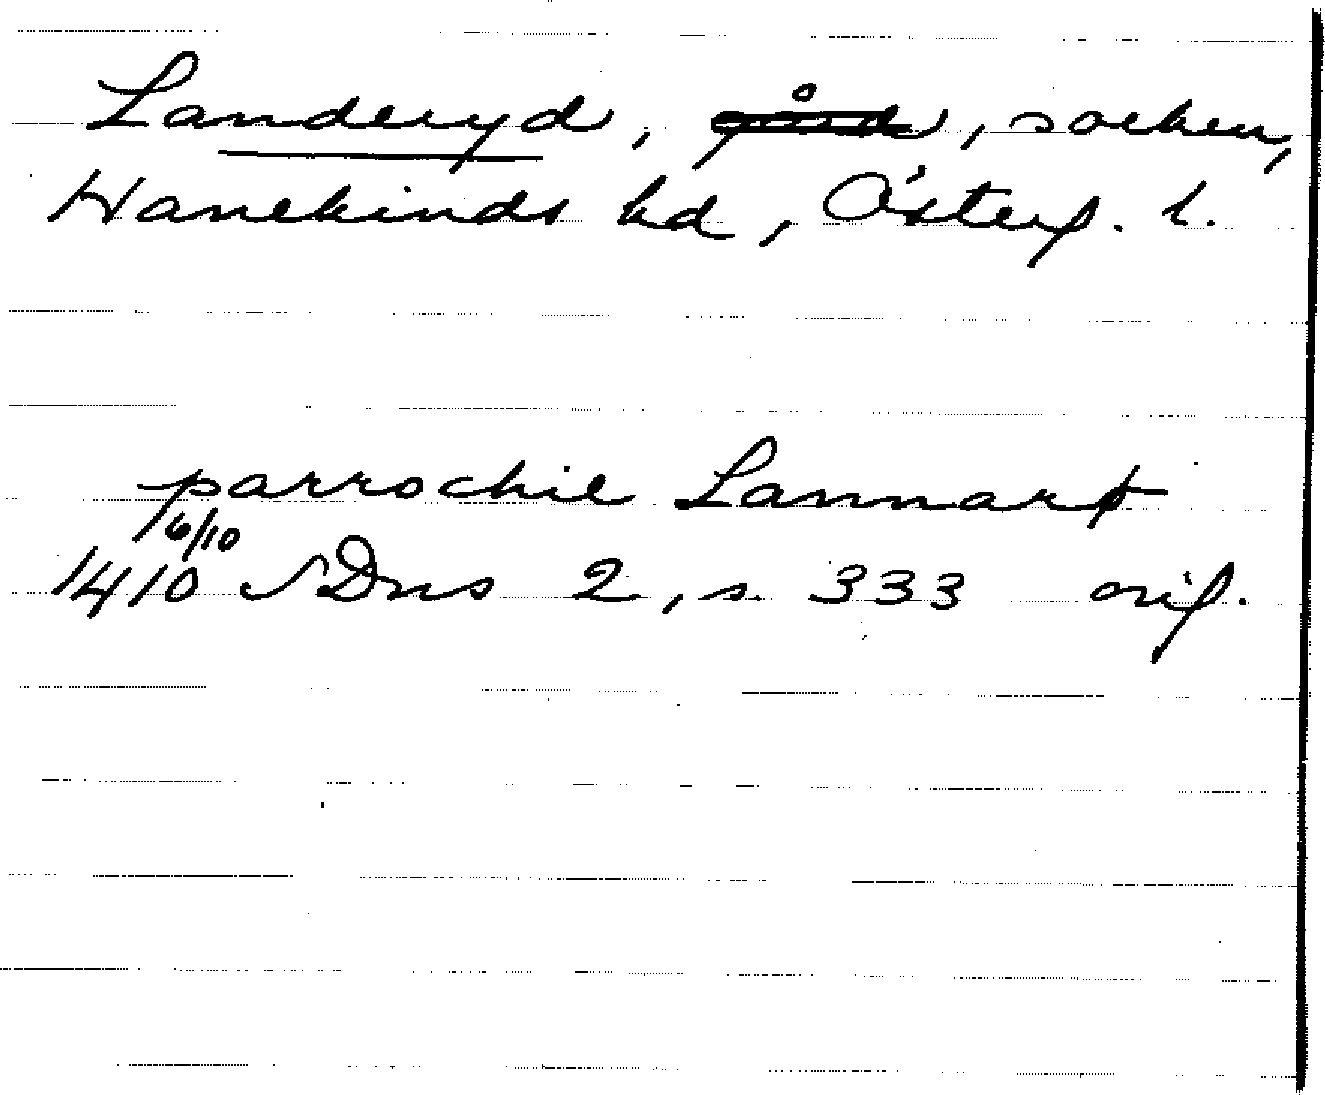 Landeryd, gård, socken,
Hanekinds hd, Österg. l.
parrochie Lannarþ
6/10
1410 SDns 2, s. 333 orig.